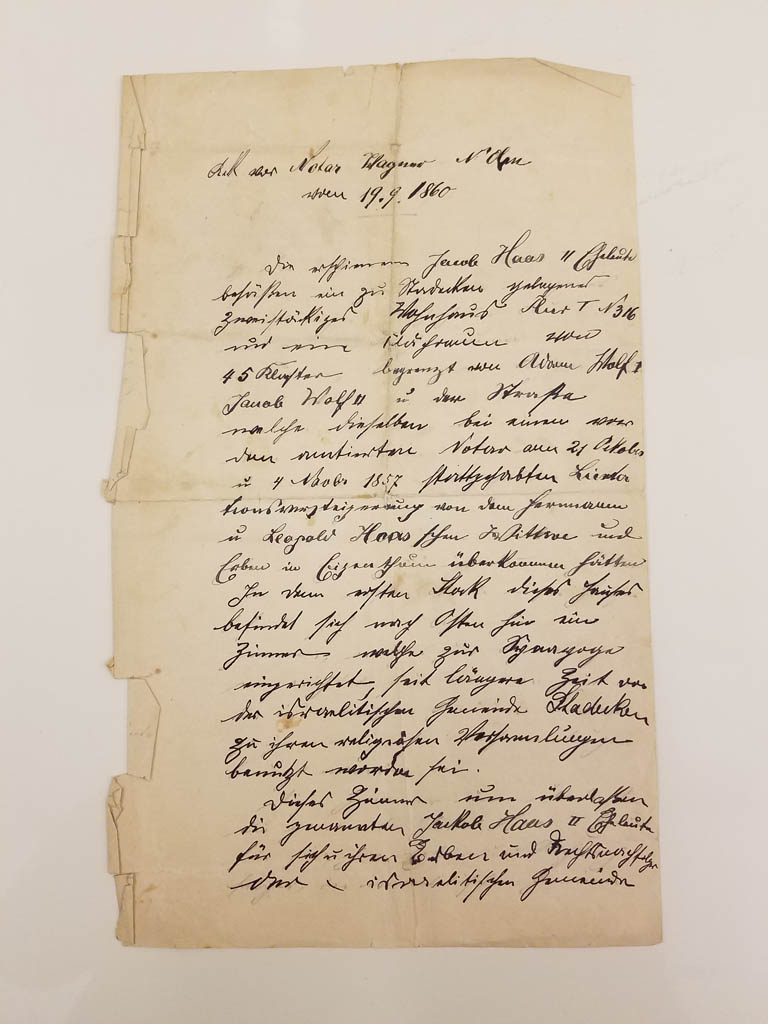 Akt vor Notar Wagner N' Olm
vom 19.9.1860
Die erschienenen Jacob Haas II Eheleute
besäßen ein zu Stadecken gelegenes
zweistöckiges Wohnhaus Flur I N 316
und ein von
45 Klafter begrenzt von Adam Wolf I
Jacob Wolf II u der Straße
welche dieselben bei einer vor
dem amtierten Notar am 21 Oktober
u 4 Novbr 1857 stattgehabten Licita
tionsversteigerung von dem Hermann
u Leopold Haas'schen Wittwe und
Erben in Eigenthum überkommen hätten
In dem ersten Stock dieses Hauses
befindet sich nach Osten hin ein
Zimmer welches zur Synagoge
eingerichtet, seit längere Zeit von
der israelitischen Gemeinde Stadecken
zu ihren religiösen Versammlungen
benutzt worden sei.
Dieses Zimmer nun überlassen
die genannten Jackob Haas II Eheleute
für sich u ihren Erben und Rechtsnachfolger
der israelitischen Gemeinde